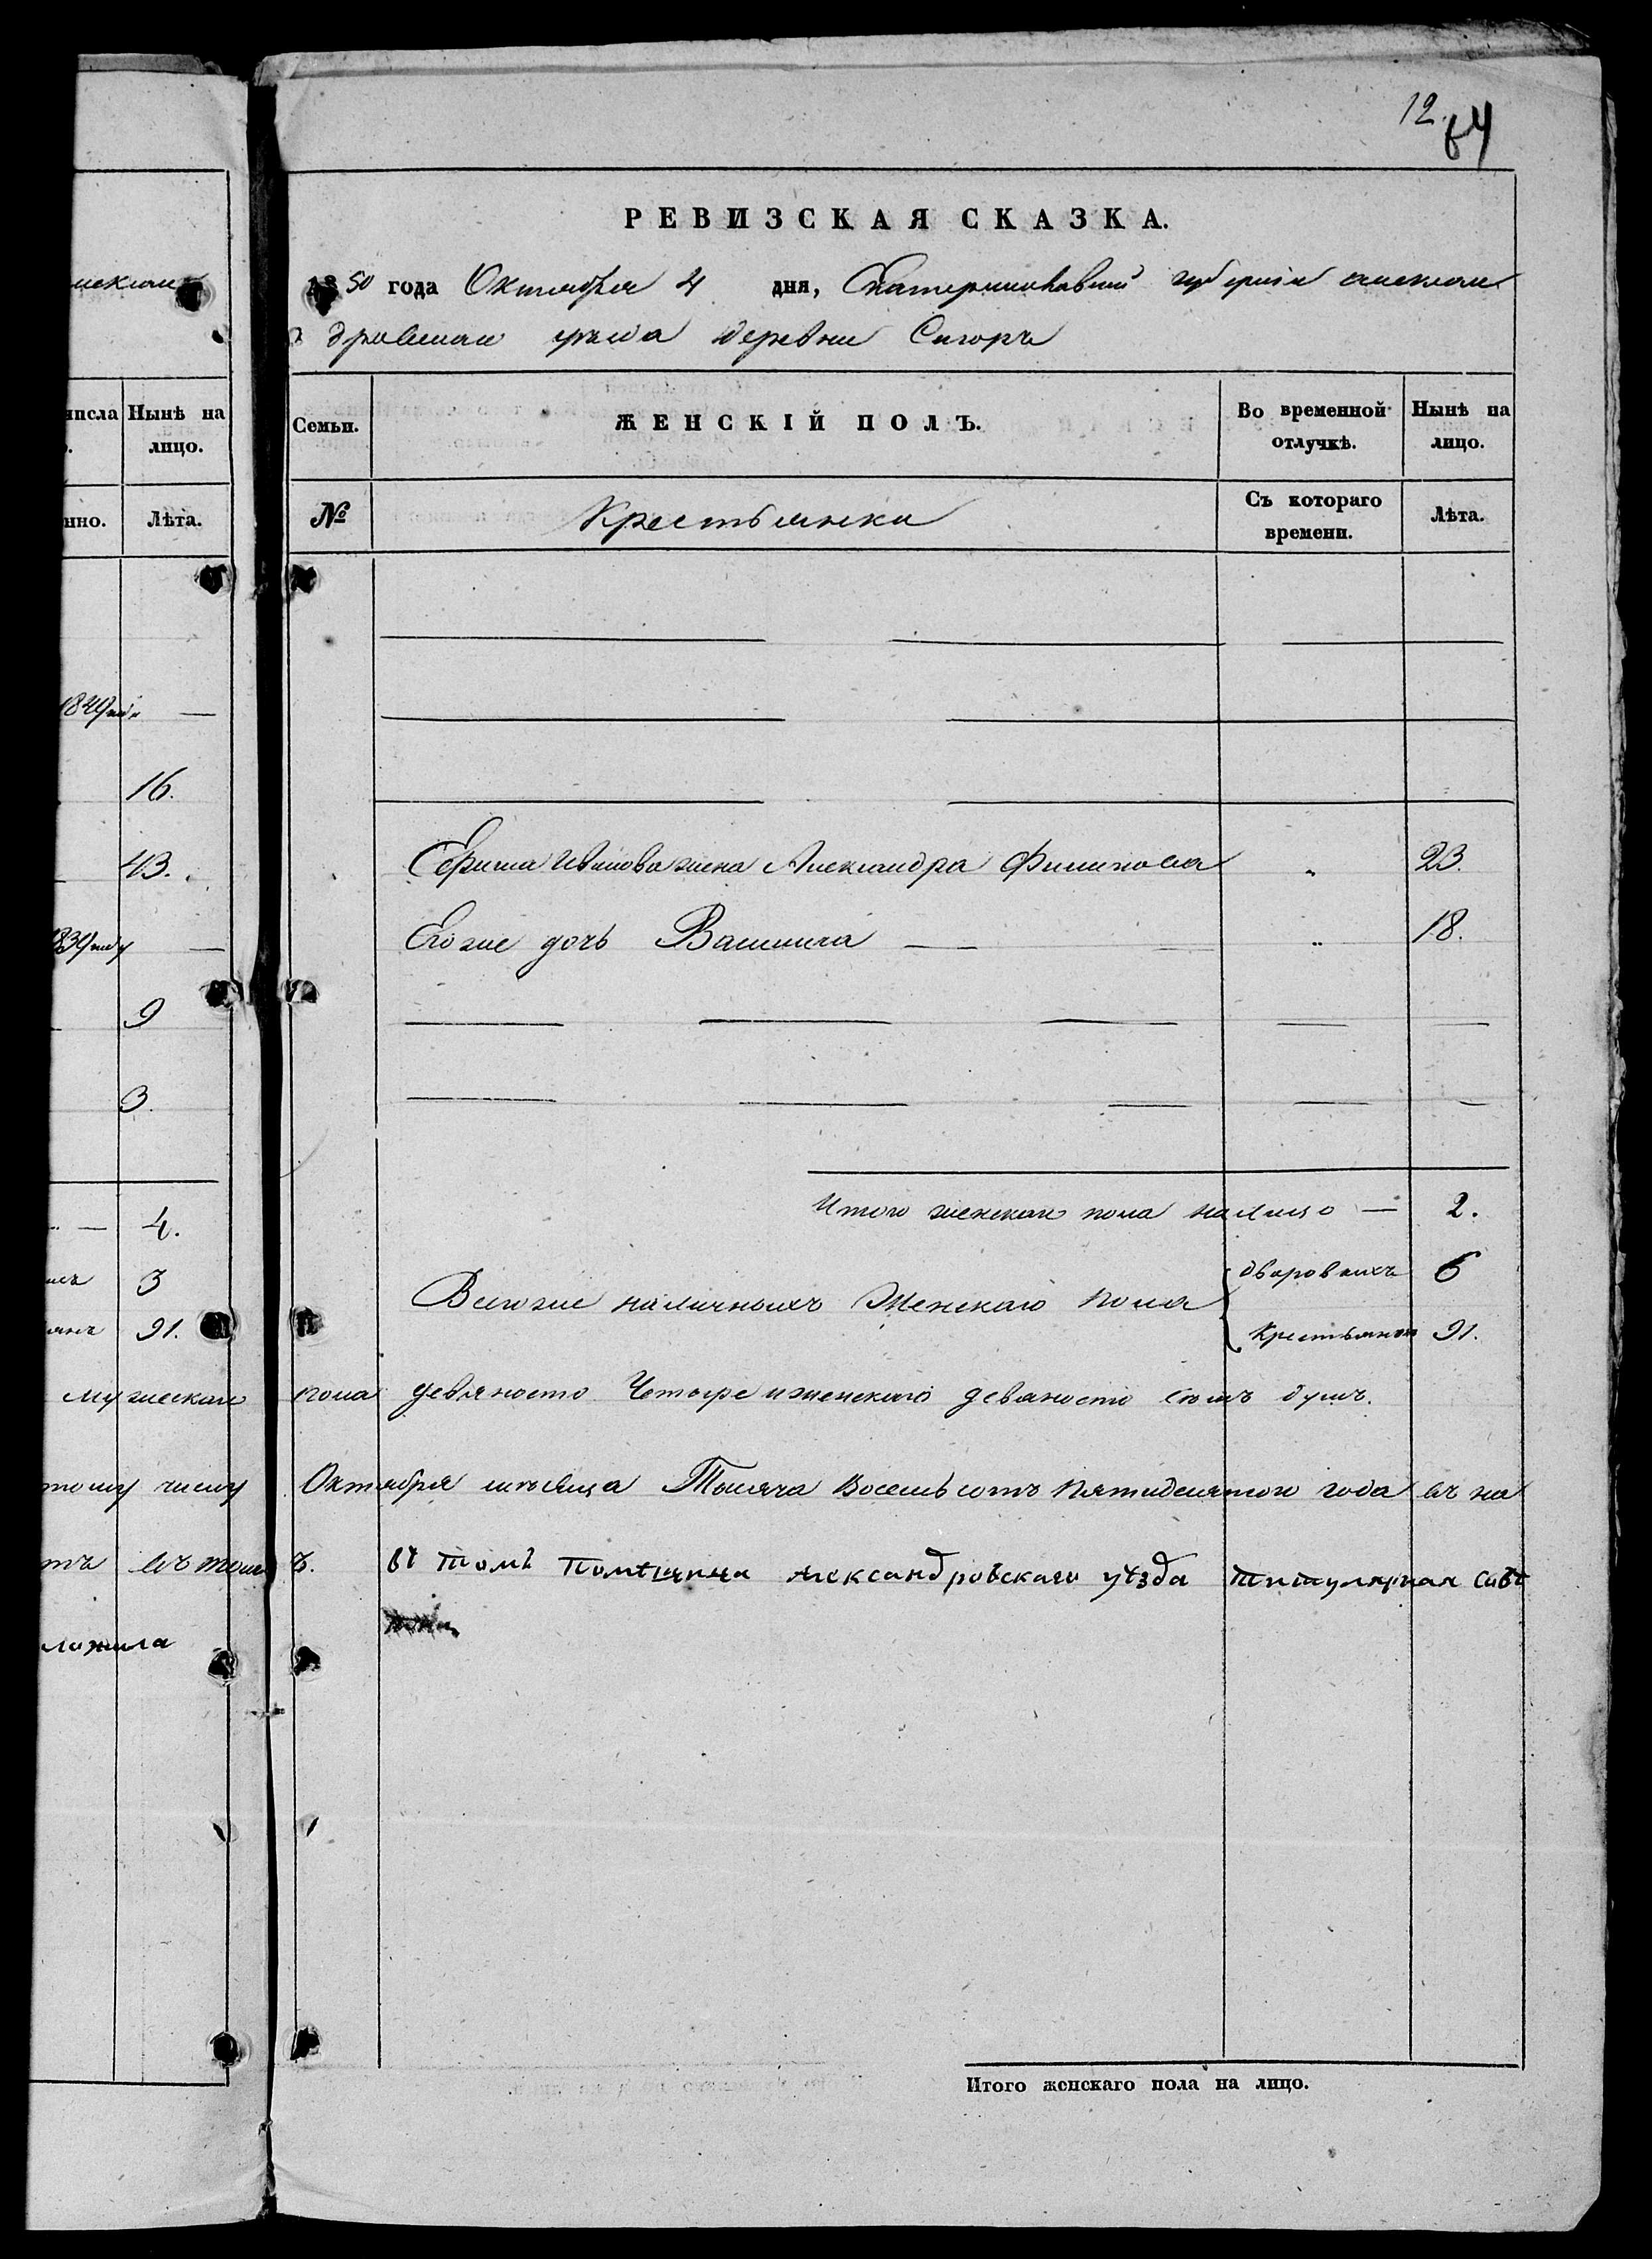 12.
64
РЕВИЗСКАЯ СКАЗКА.
1850 года Октября 4 дня, Екатеринославской губернии алексан
дровскаго уезда деревни
нісла
Нынѣ на
лицо.
Семьи.
ЖЕНСКІЙ ПОЛЪ.
Во временной
отлучкѣ.
Нынѣ на
лицо.
нно.
Лѣта.
№
Крестьянки
Съ котораго
времени.
Лѣта.
16.
43. Ивanова жена Александра Филипова " 23.
Его же дочь Василиса — — " 18.
9
3.
Итого женскаго пола налицо — 2.
4.
дворовыхъ 6
3
Всего же наличныхъ Женскаго пола
Крестьянокъ 91.
91.
мужескаго пола девяносто Четыре и женскаго девяносто семь душъ.
тому числу Октября мѣсяца Тысяча Восемьсотъ Пятидесятого года въ на
въ томъ помѣщица Александровскаго уѣзда титулярная совѣ
ложила
Итого женскаго пола на лицо.